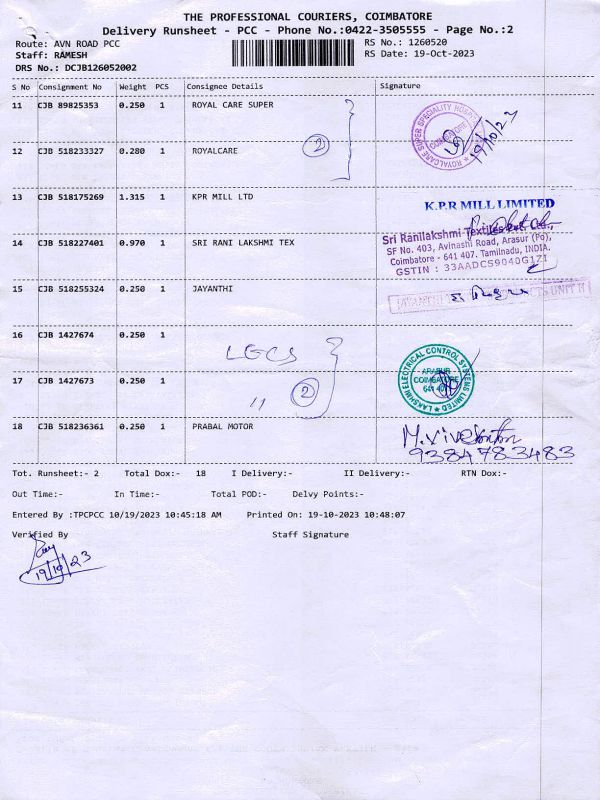 THE PROFESSIONAL COURIERS, COIMBATORE
Delivery Runsheet - PCC - Phone No.:0422-3505555 - Page No.:2
Route: AVN ROAD PCC RS No.: 1260520
Staff: RAMESH RS Date: 19-Oct-2023
DRS No.: DCJB126052002
S No Consignment No Weight PCS Consignee Details Signature
11 CJB 89825353 0.250 1 ROYAL CARE SUPER
ROYALCARE SUPER SPECIALITY HOSPITAL COIMBATORE 19/10/23
12 CJB 518233327 0.280 1 ROYALCARE 2
13 CJB 518175269 1.315 1 KPR MILL LTD
K.P.R MILL LIMITED
14 CJB 518227401 0.970 1 SRI RANI LAKSHMI TEX
Sri Ranilakshmi Textiles Ltd.,
SF No. 403, Avinashi Road, Arasur (Po),
Coimbatore - 641 407. Tamilnadu, INDIA.
GSTIN : 33AADCS9040G1ZI
15 CJB 518255324 0.250 1 JAYANTHI
UNIT II
16 CJB 1427674 0.250 1
LECS
17 CJB 1427673 0.250 1
" 2
LAKSHMI ELECTRICAL CONTROL SYSTEMS LIMITED
ARASUR
COIMBATORE
641 407
18 CJB 518236361 0.250 1 PRABAL MOTOR
9384783483
Tot. Runsheet:- 2 Total Dox:- 18 I Delivery:- II Delivery:- RTN Dox:-
Out Time:- In Time:- Total POD:- Delvy Points:-
Entered By :TPCPCC 10/19/2023 10:45:18 AM Printed On: 19-10-2023 10:48:07
Verified By Staff Signature
19/10/23